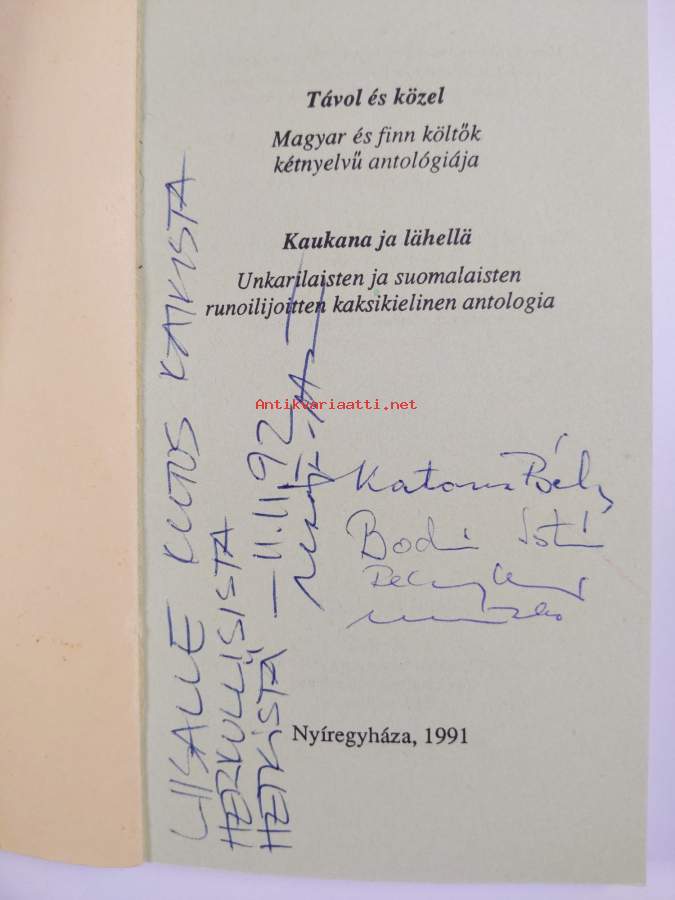 Távol és közel
Magyar és finn költők
kétnyelvű antológiája
Kaukana ja lähellä
Unkarilaisten ja suomalaisten
runoilijoitten kaksikielinen antologia
Antikvariaatti.net
LIISALLE KIITOS KAIKISTA
HERKULLISISTA
HETKISTÄ - 11.11.92
Katona Béla
Bodi
Nyíregyháza, 1991